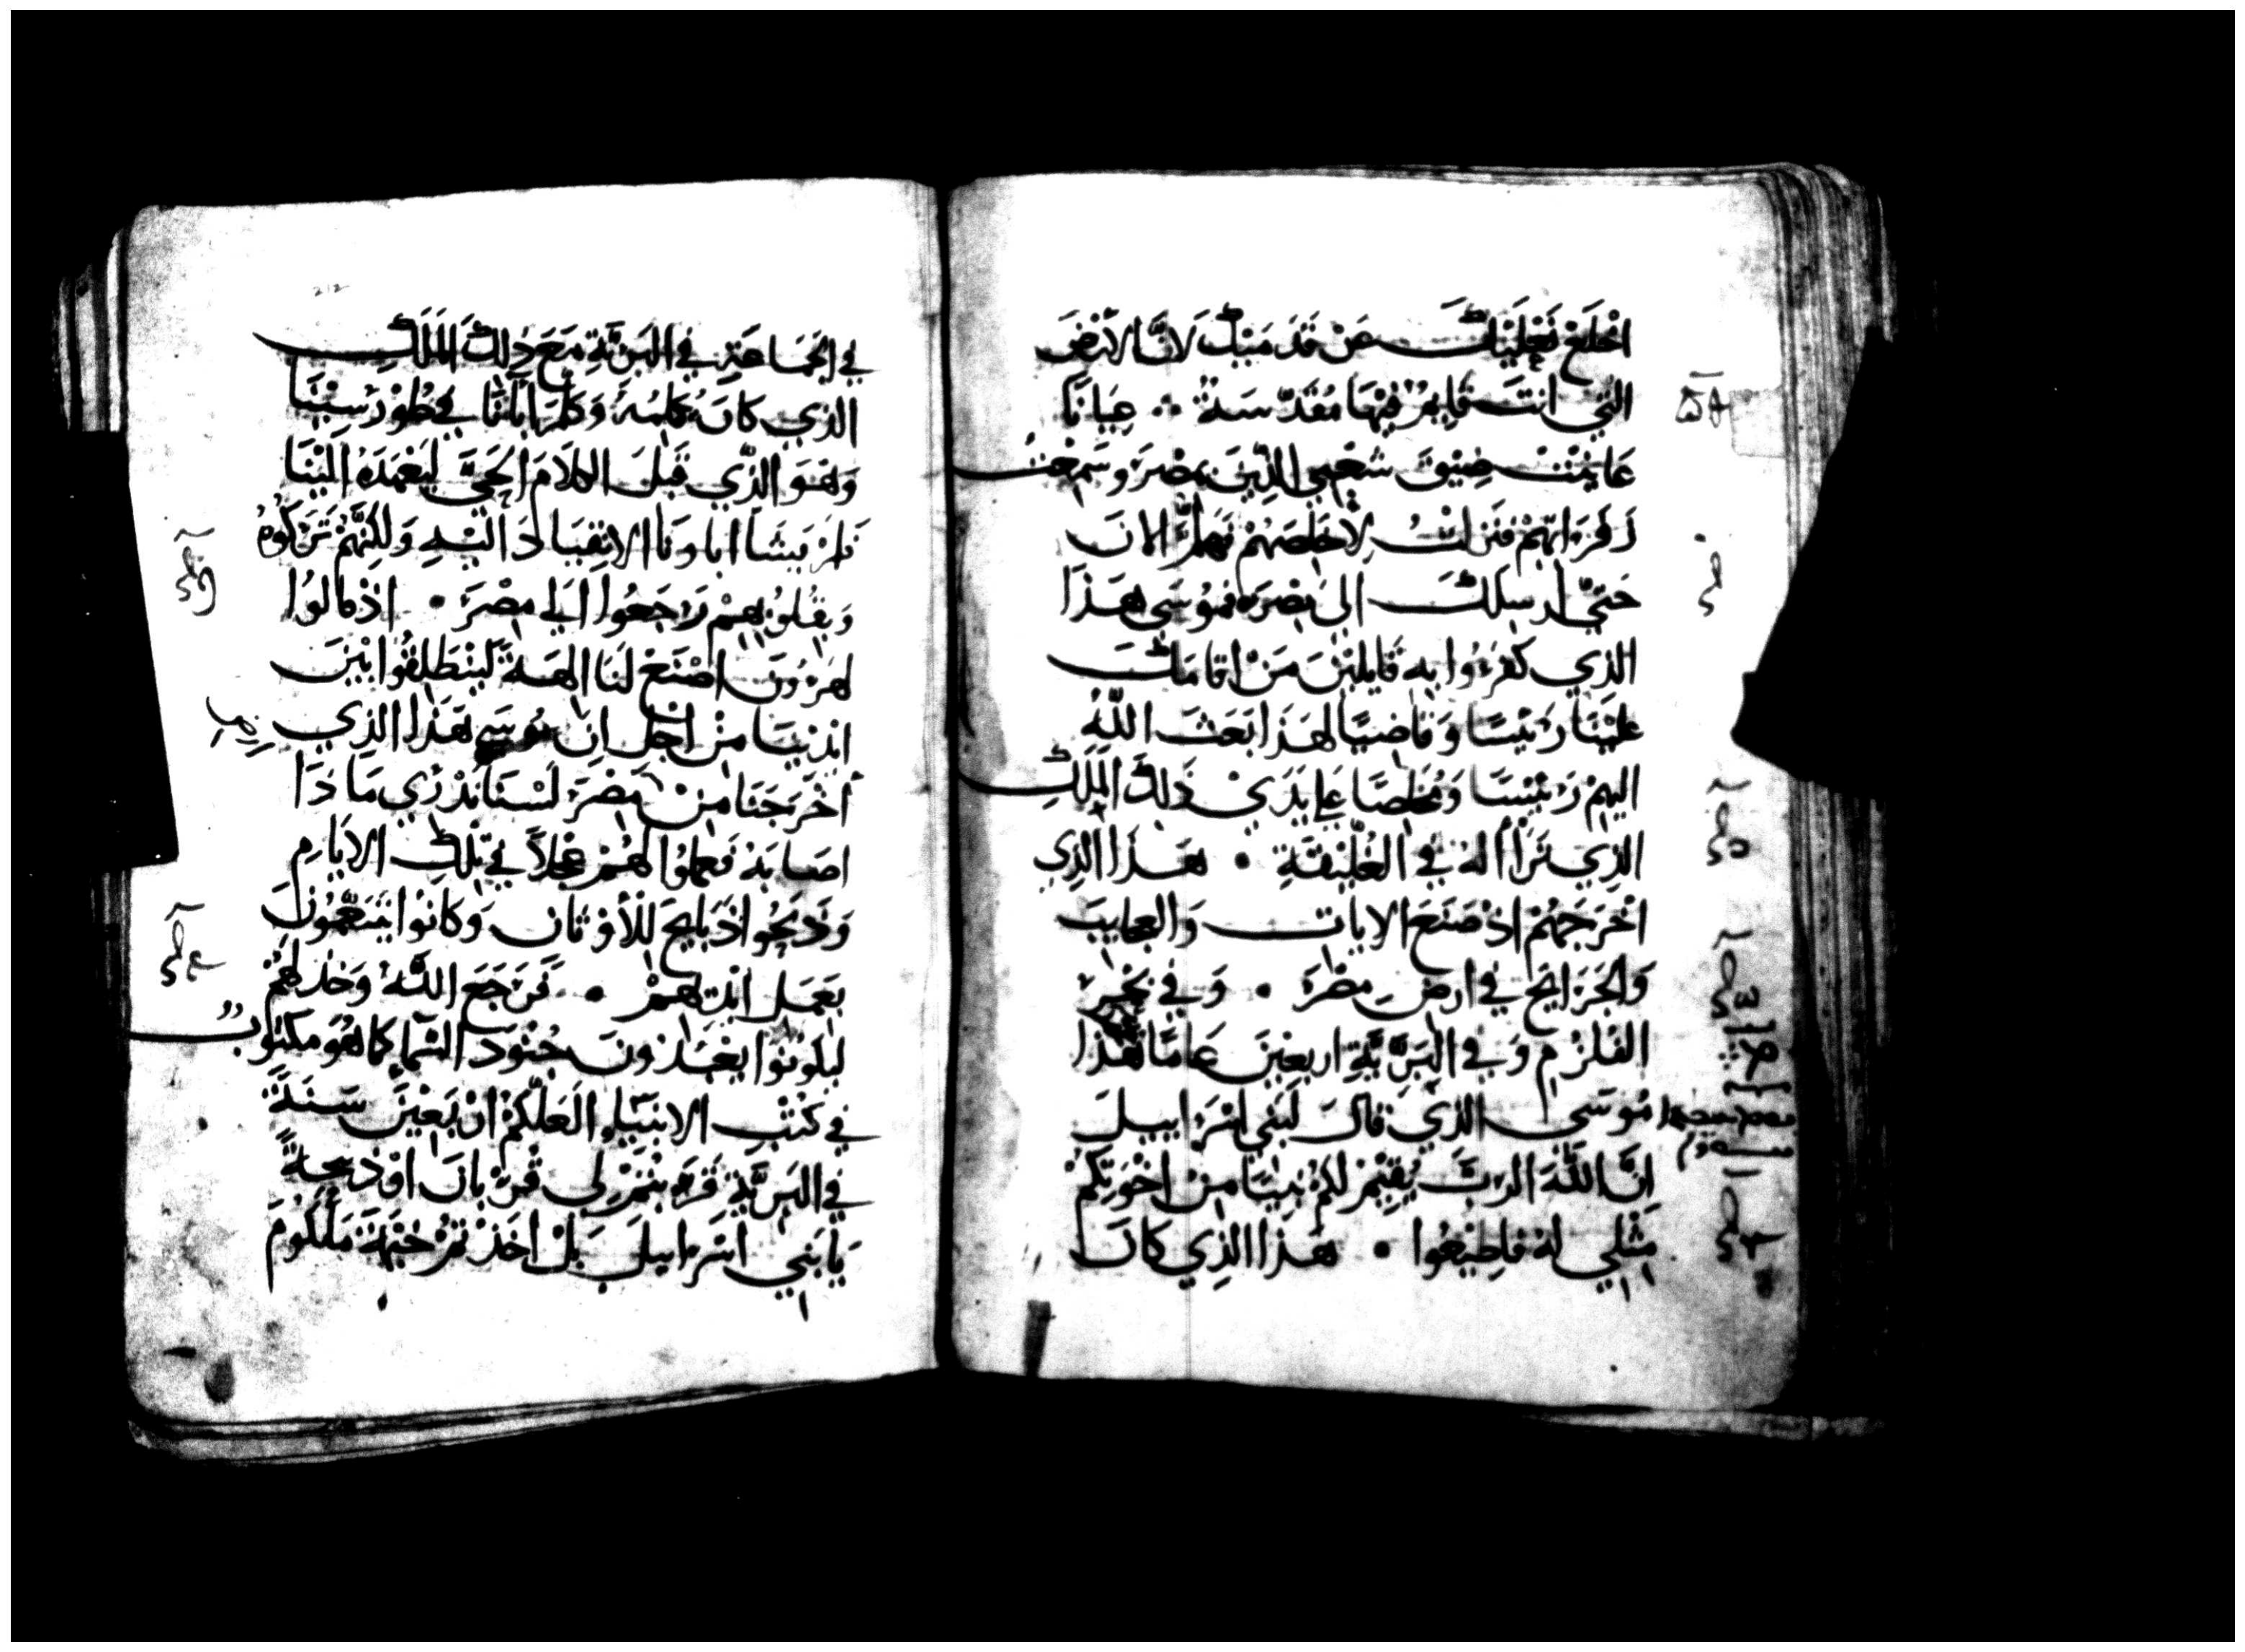 اخْلَعْ نَعْلَيْكَ عَنْ قَدَمَيْكَ لَانَّ الْارْضَ
التي انتَ قايِمٌ فِيْهَا مُقَدَّسَةٌ ∴ عِيَانًا
عَايَنْتُ ضِيْقَ شَعْبِي الذِيْنَ بمصْرَ وسَمِعْتُ
زَفَرَاتِهمْ فنَزلتُ لِأخَلِصَهُمْ فَهلمَّ الانَ
حَتيْ ارسِلكَ الىَ مِصْرَ فموُسَي هَذَا
الذي كفَرُوا بهِ قَايلينَ مَنْ اقامَكَ
عَليْنَا رَئيسًا وَقاضيًا لهَذَا بَعَثَ اللّهُ
اليهِمْ رَئيْسًا وَمُخلِصًا عَلي يَدَيْ ذَلِكَ المَلَكِ
الذِي تَرَاأ لهُ فِي العُلَّيْقَةِ • هَذا الذِي
اخْرَجَهُمْ اذْ صَنَعَ الايات وَالعجايبَ
وَالجَرَايحَ في ارضِ مِصْرَ • وَفي بَحْرِ
القلزُمِ وَفي البَرِّيَّةِ اربعينَ عَامًا هَذا
مُوسَي الذي قالَ لبَني اسْرَاييلَ
انَّ اللهَ الرَبَّ يُقِيْمُ لكمْ نبيًا مِنْ اخْوَتِكمْ
مِثْلي لهُ فاطِيْعُوا • هَذَا الذِي كَانَ
212
في الجَمَاعَةِ في البَرِّيَّةِ مَعَ ذلِكَ المَلَكِ
الذي كانَ يُكلمُهُ وَكلمَ ابَانَا في طُوْرِ سِيْنَا
وَهُوَ الذَّي قبلَ الكلامَ الحَيَّ ليَعْمَدَهُ الَيْنَا
فَلمْ يَشا اباونَا الانقِيادَ الَيْهِ وَلكِنَّهُمْ تَركُوهُ
وَبِقُلوُبهِمْ رَجَعُوا الَي مِصْرَ • اذْ قالوُا
لهرُونَ اصْنَعْ لنَا الهَةً لينْطَلِقُوا بَيْنَ
ايْدِيْنَا مِنْ اجْل انَ مُوسَي هَذا الذِي
اخْرَجَنا مِنْ مِصْرَ لَسْنَا نَدْرِي مَاذَا
اصَابَهُ فعَملوُا لهُمْ عِجْلاً في تِلكَ الايَامِ
وَذَبَحُوا ذَبَايحَ للأوْثان وَكانوُا يَتنَعَّمُونَ
بعَمَل ايْديهمْ • فَرَجَعَ اللهُ وَخذلهُمْ
ليكوُنوُا يعْبُدُونَ جُنُودَ السَّمآء كما هُوَ مكتوُبٌ
في كُتْبِ الانبيَآءِ العَلّكمْ ارْبَعِيْنَ سَنَةً
في البَرِّيَّةِ قَرَّبْتمْ لي قُرْبانَ اوْ ذبيحَةً
يَا بَني اسْرَاييلَ بَلْ اخَذْتمْ خيْمَةَ مَلكُومَ